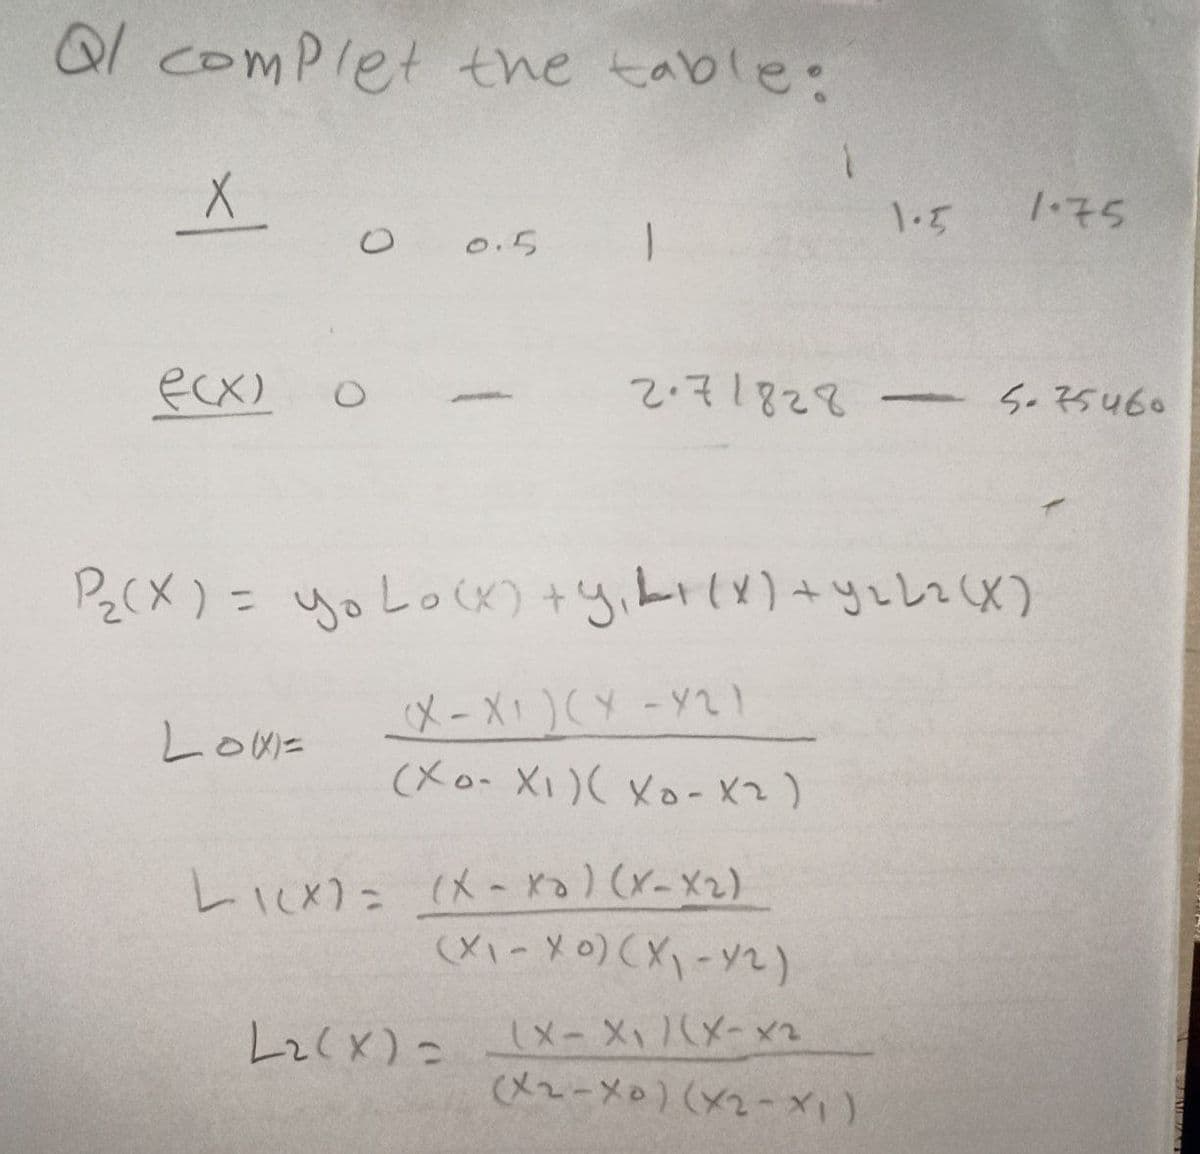 Q1 complet the table:
X 0 0.5 1 1.5 1.75
e(x) 0 — 2.71828 — 5.75460
P2(X) = y0 L0(X) + y1 L1(X) + y2 L2(X)
L0(X)= (X-X1)(X-X2)
(X0-X1)(X0-X2)
L1(X) = (X-X0)(X-X2)
(X1-X0)(X1-X2)
L2(X) = (X-X1)(X-X2
(X2-X0)(X2-X1)